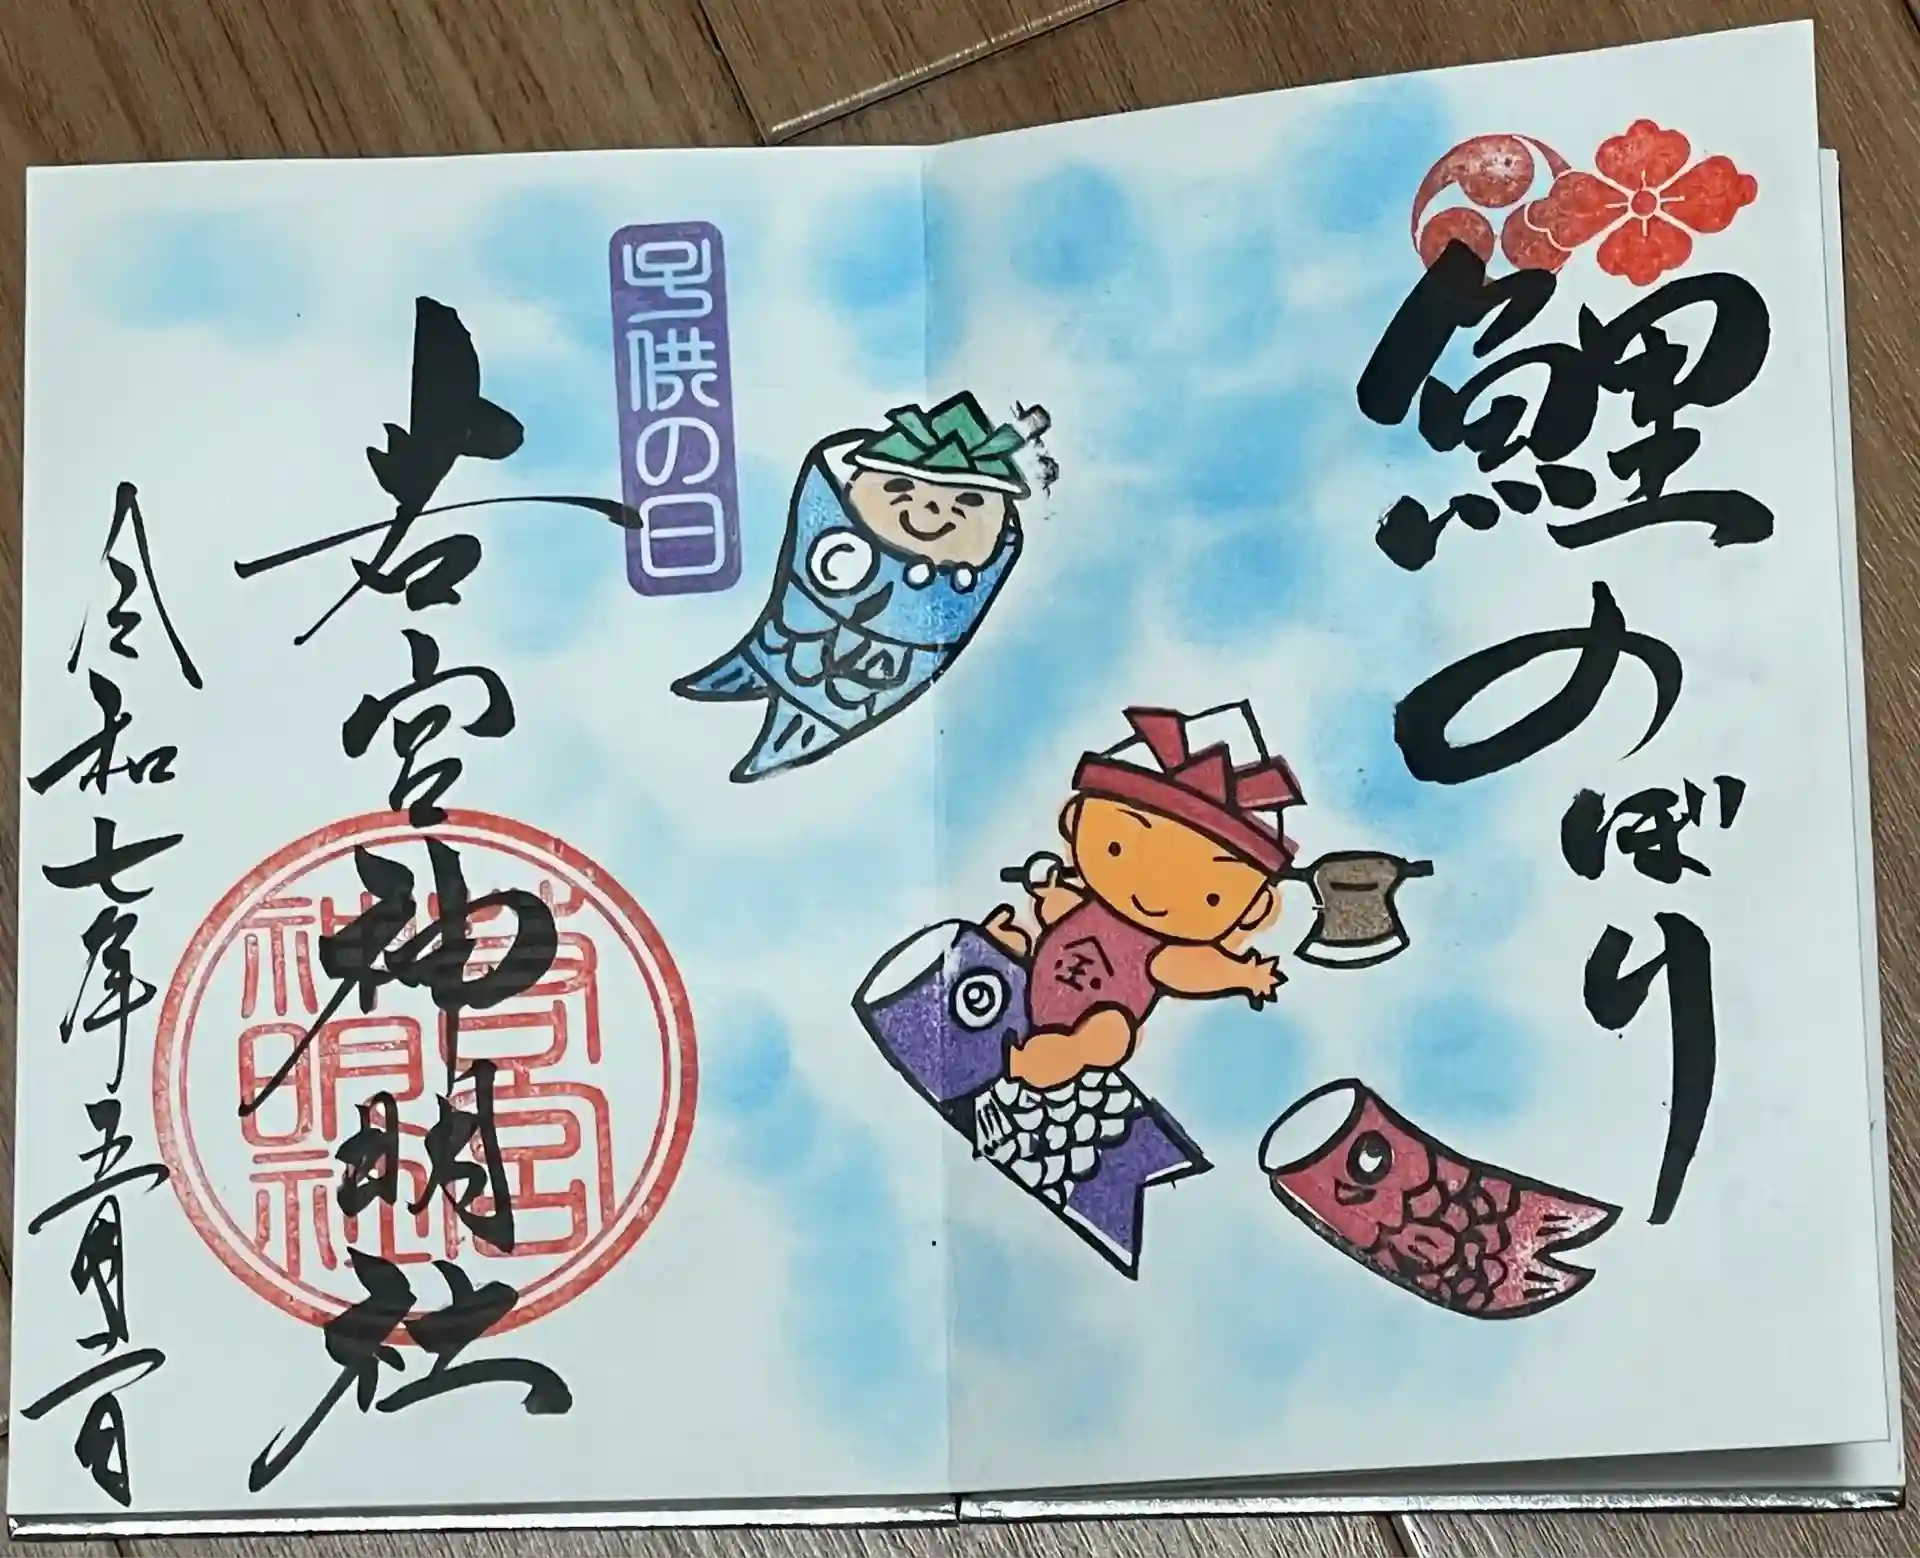 鯉のぼり
金
子供の日
若宮神明社
若宮
神明社
令和七年五月二日